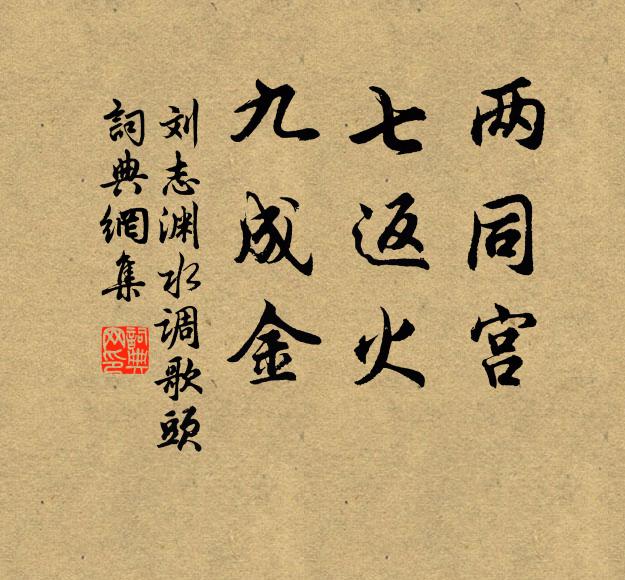 两同宫
七返火
九成金
刘志渊水调歌頭
詞典網集
詞典
网印